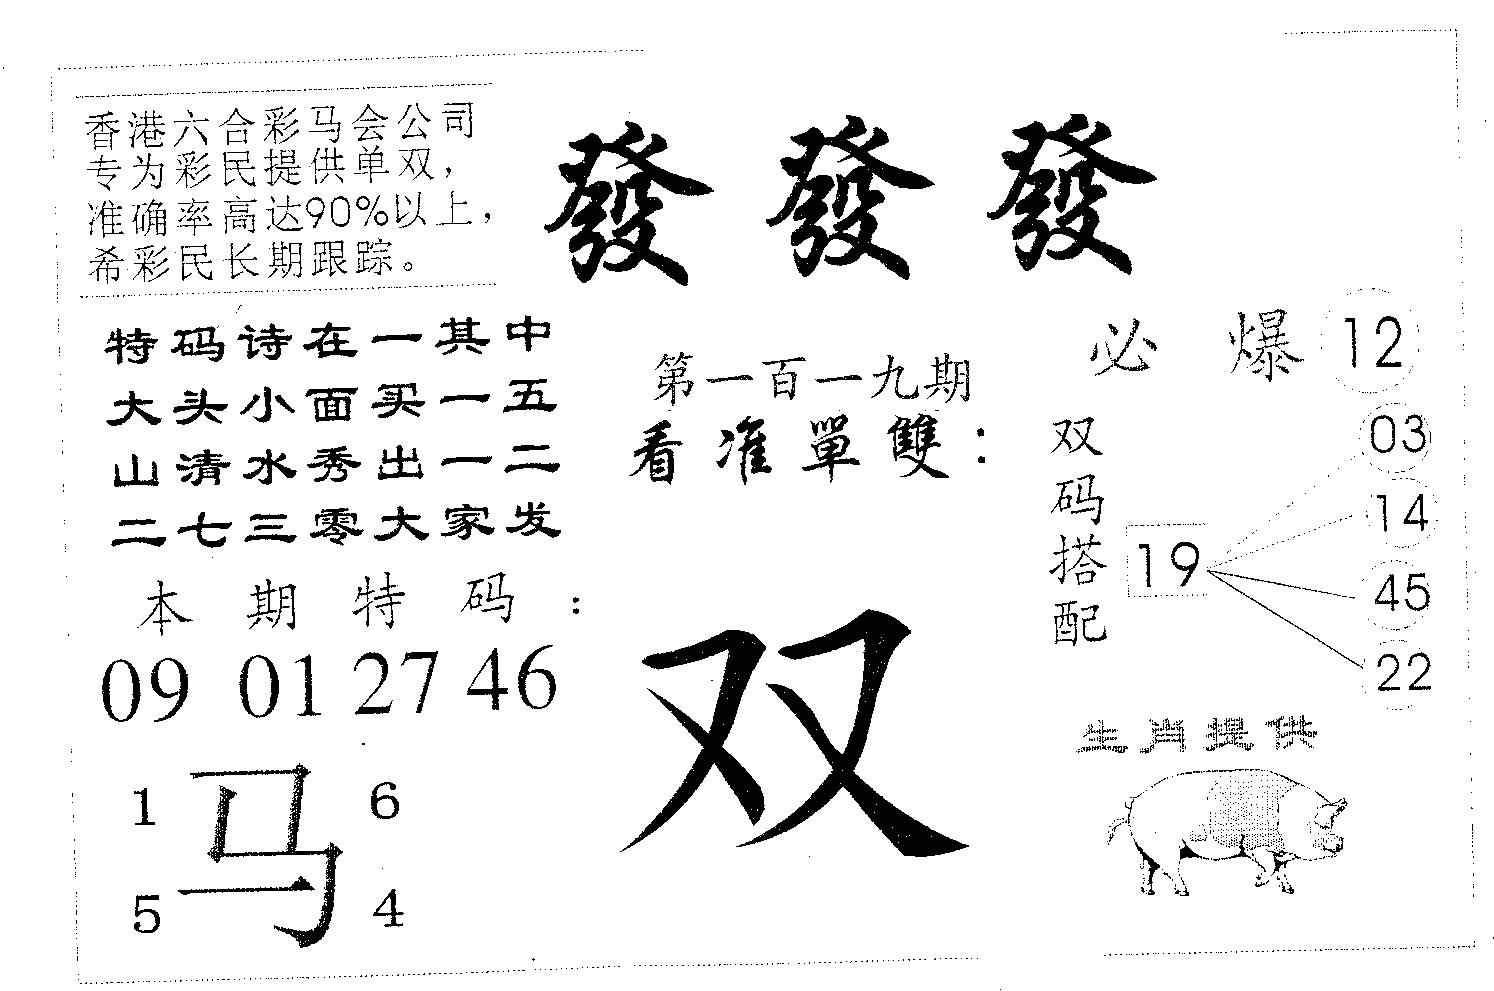 香港六合彩马会公司
专为彩民提供单双，
准确率高达90%以上，
希彩民长期跟踪。
發 發 發
特码诗在一其中
大头小面买一五
山清水秀出一二
二七三零大家发
第一百一九期
看准單雙：
必 爆 12
双码搭配
19
03
14
45
22
本期特码：
09 01 27 46
双
生肖提供
1 马 6
5 4